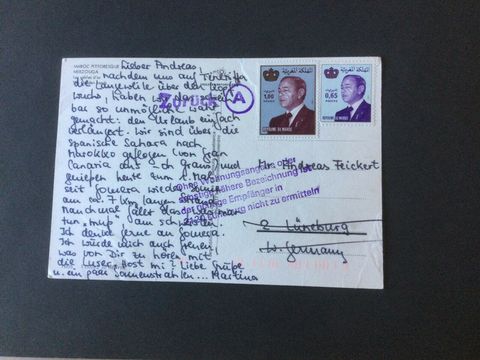 MAROC PITTORESQUE
MERZOUGA
Lieber Andreas,
nachdem uns auf Teneriffa
die Langeweile über den Kopf
wuchs, haben wir das
bar so unmögliche wahr
gemacht: den Urlaub einfach
verlängert. Wir sind über die
spanische Sahara nach
Marokko geflogen (von Gran
Canaria aus 2 h) und
genießen heute zum 1. Mal
seit Gomera wieder
am ca. 7 km langen
manchmal fällt das
tun "mup" am schwersten.
Ich denke gerne an Gomera.
Ich würde mich auch freuen,
was von Dir zu hören mit
die Luser Post mi? Liebe Grüße
u. ein paar Sonnenstrahlen... Martina
Zurück
A
المملكة المغربية
1,00
ROYAUME DU MAROC
المملكة المغربية
0,65
ROYAUME DU MAROC
Mr. Andreas Feickert
Ohne Wohnungsangabe oder
sonstige nähere Bezeichnung ist
der richtige Empfänger in
2120 Lüneburg nicht zu ermitteln
2 Lüneburg
W. Germany